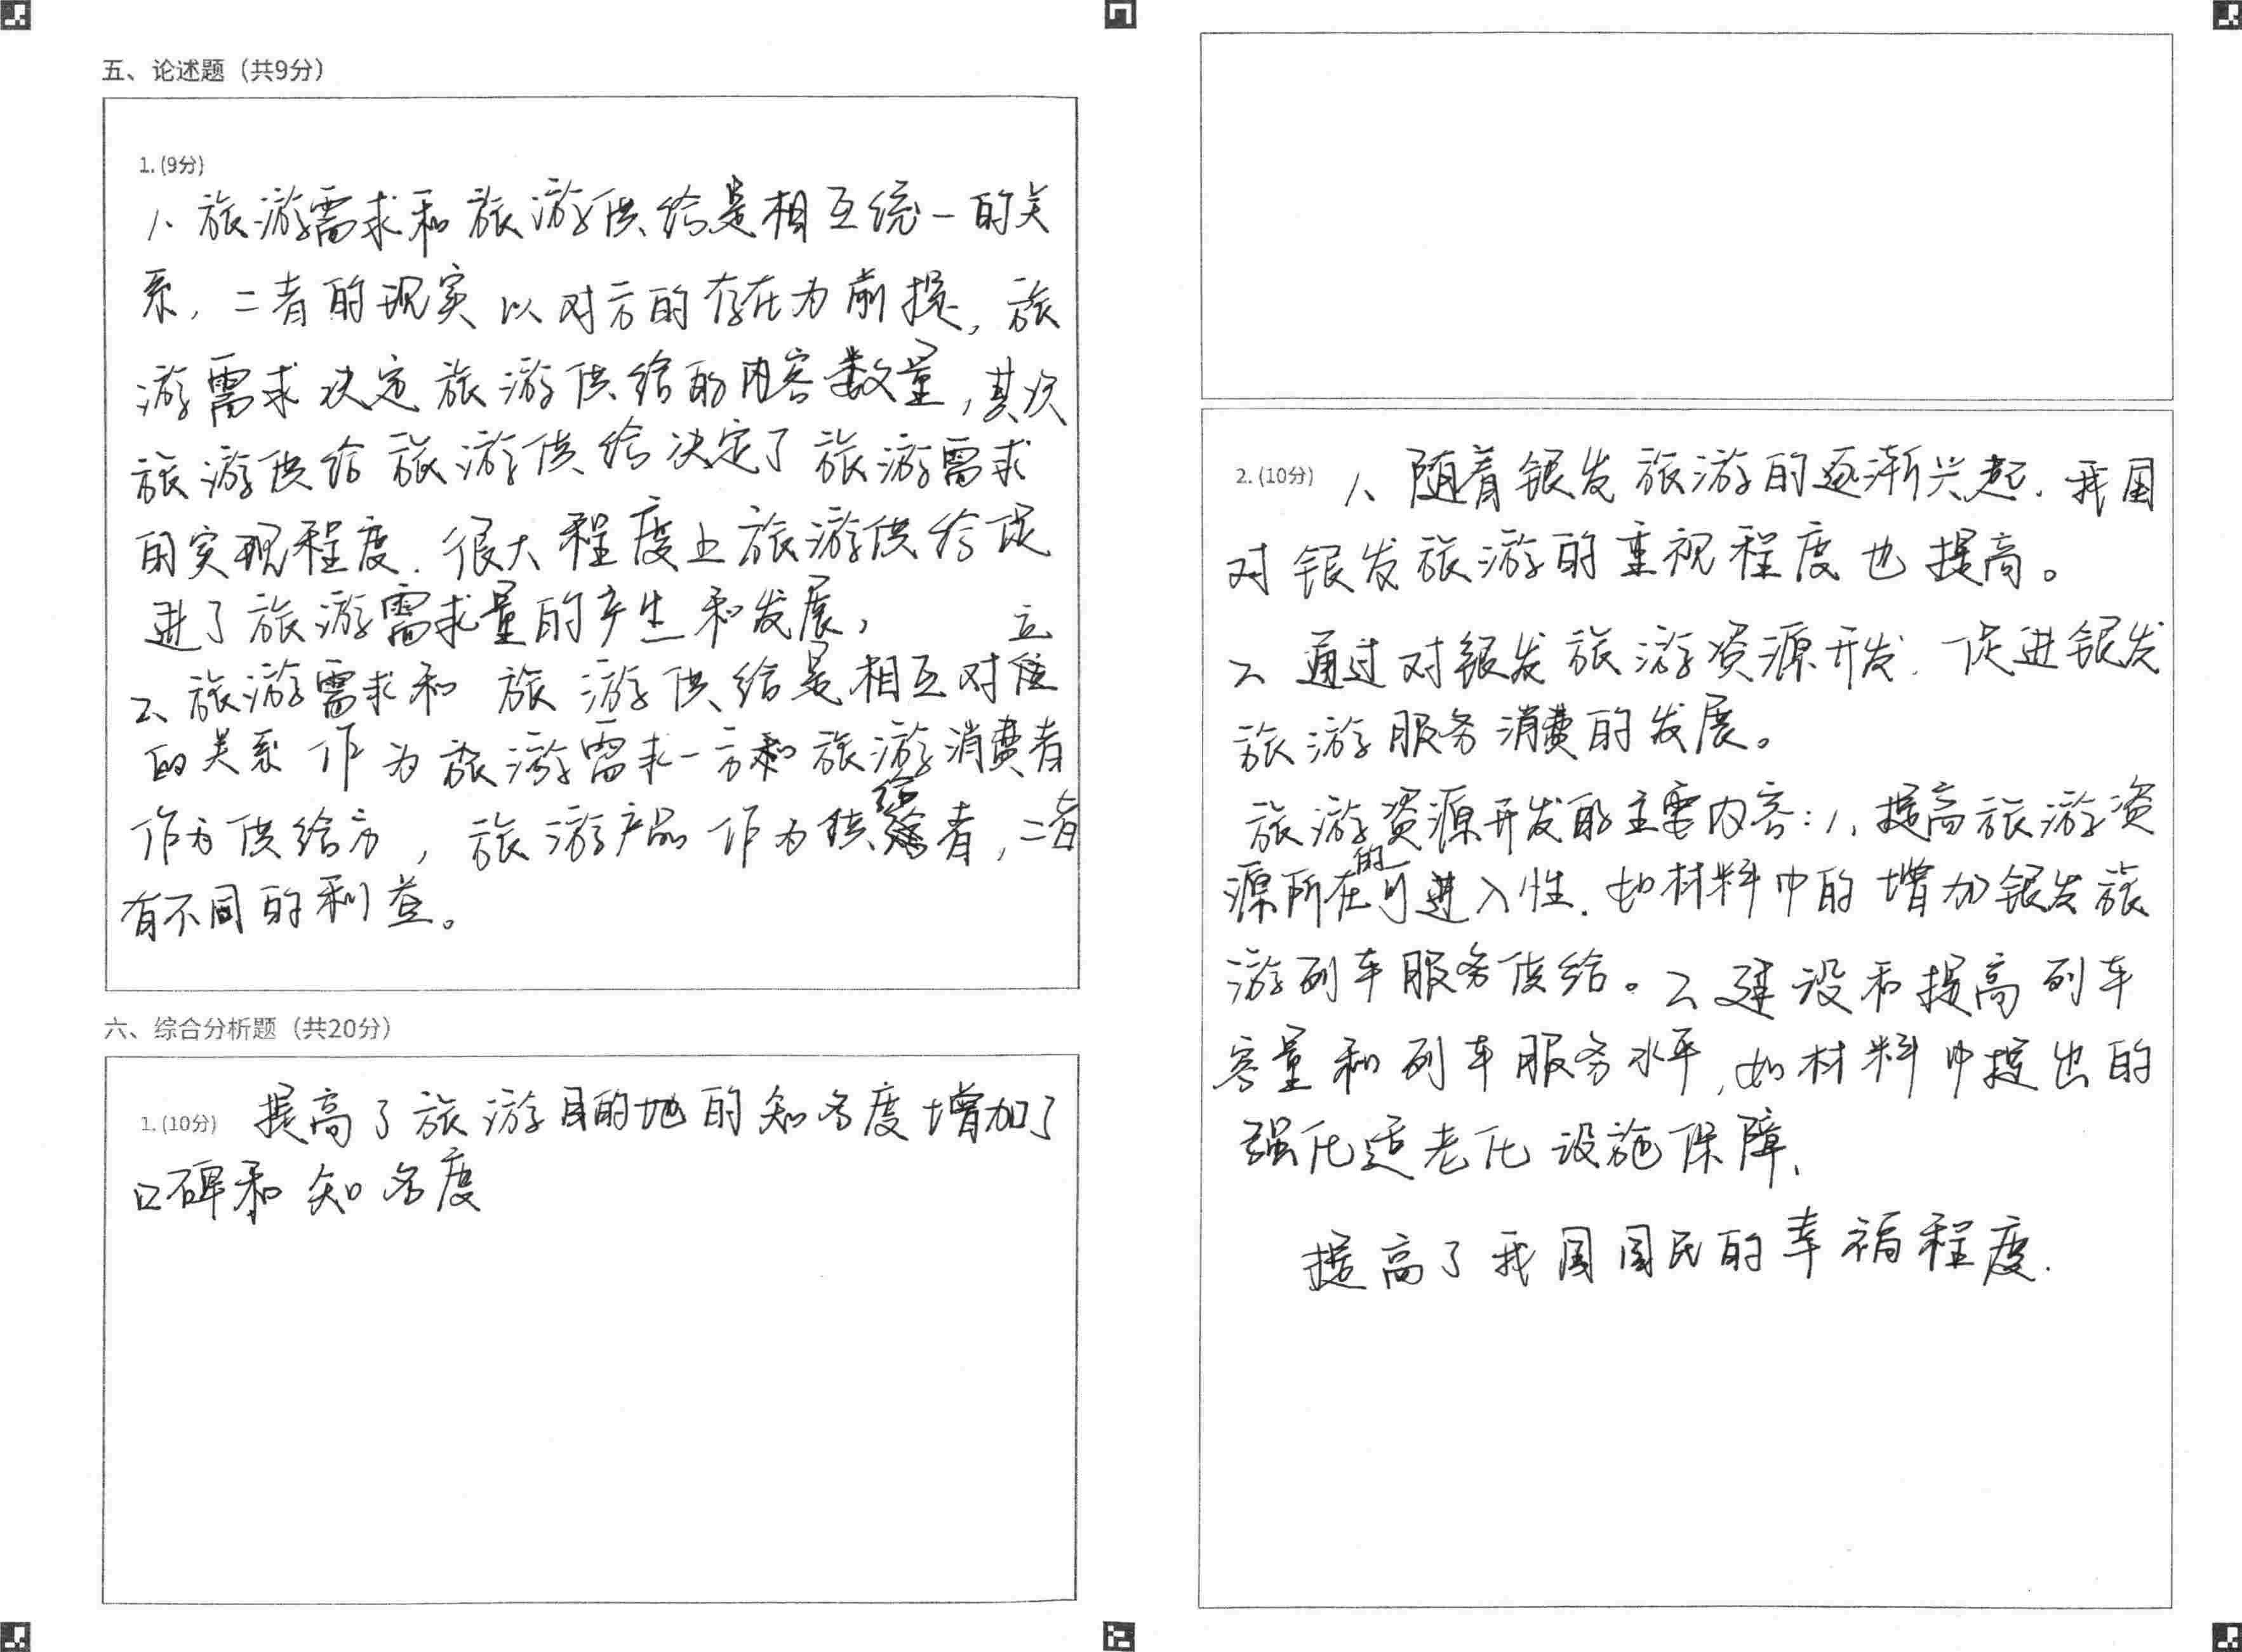 五、论述题（共9分）
1.(9分)
1、旅游需求和旅游供给是相互统一的关
系，二者的现实以对方的存在为前提，旅
游需求决定旅游供给的内容数量，其次
旅游供给旅游供给决定了旅游需求
的实现程度.很大程度上旅游供给促
进了旅游需求量的产生和发展，
2、旅游需求和旅游供给是相互对立
的关系作为旅游需求一方和旅游消费者
作为供给方，旅游产品作为供给者，二者
有不同的利益。
六、综合分析题（共20分）
1.(10分) 提高了旅游目的地的知名度增加了
口碑和知名度
2.(10分) 1、随着银发旅游的逐渐兴起.我国
对银发旅游的重视程度也提高。
2、通过对银发旅游资源开发.促进银发
旅游服务消费的发展。
旅游资源开发的主要内容：1、提高旅游资
源所在的可进入性.如材料中的增加银发旅
游列车服务供给。2、建设和提高列车
容量和列车服务水平,如材料中提出的
强化适老化设施保障、
提高了我国国民的幸福程度.